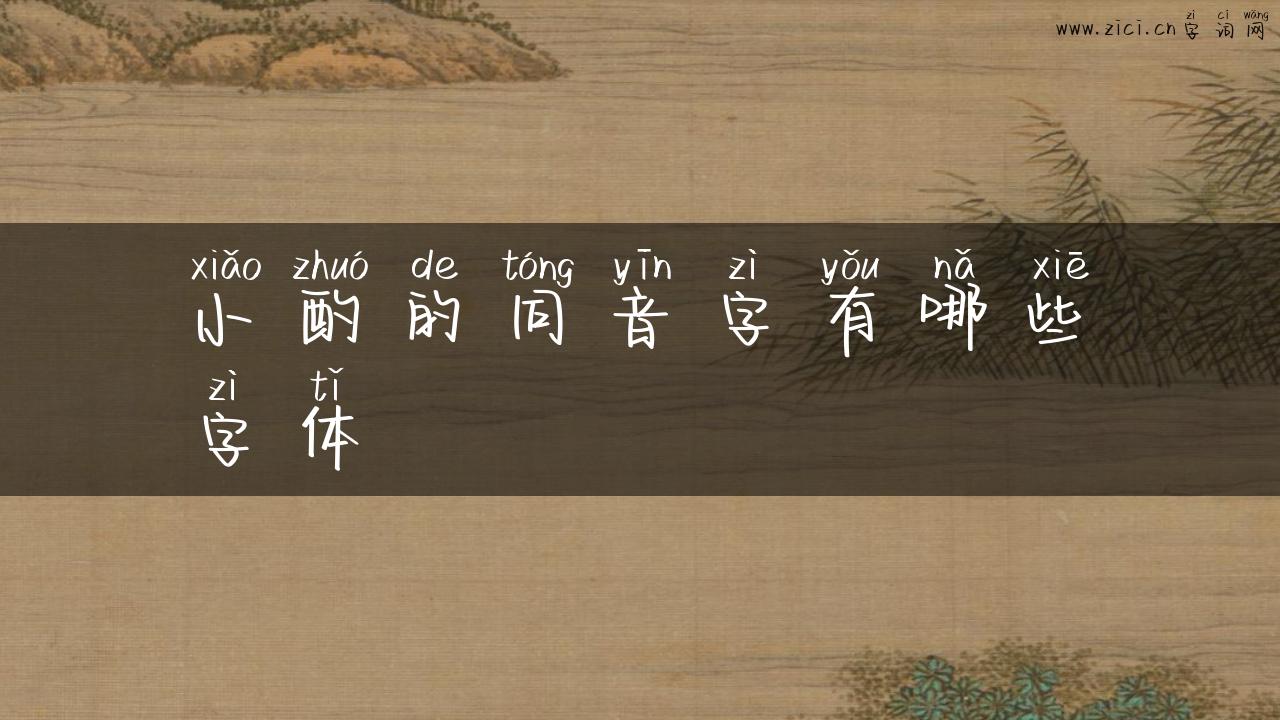 www.zici.cn zì cí wǎng
字词网
xiǎo zhuó de tóng yīn zì yǒu nǎ xiē
小酌的同音字有哪些
zì tǐ
字体